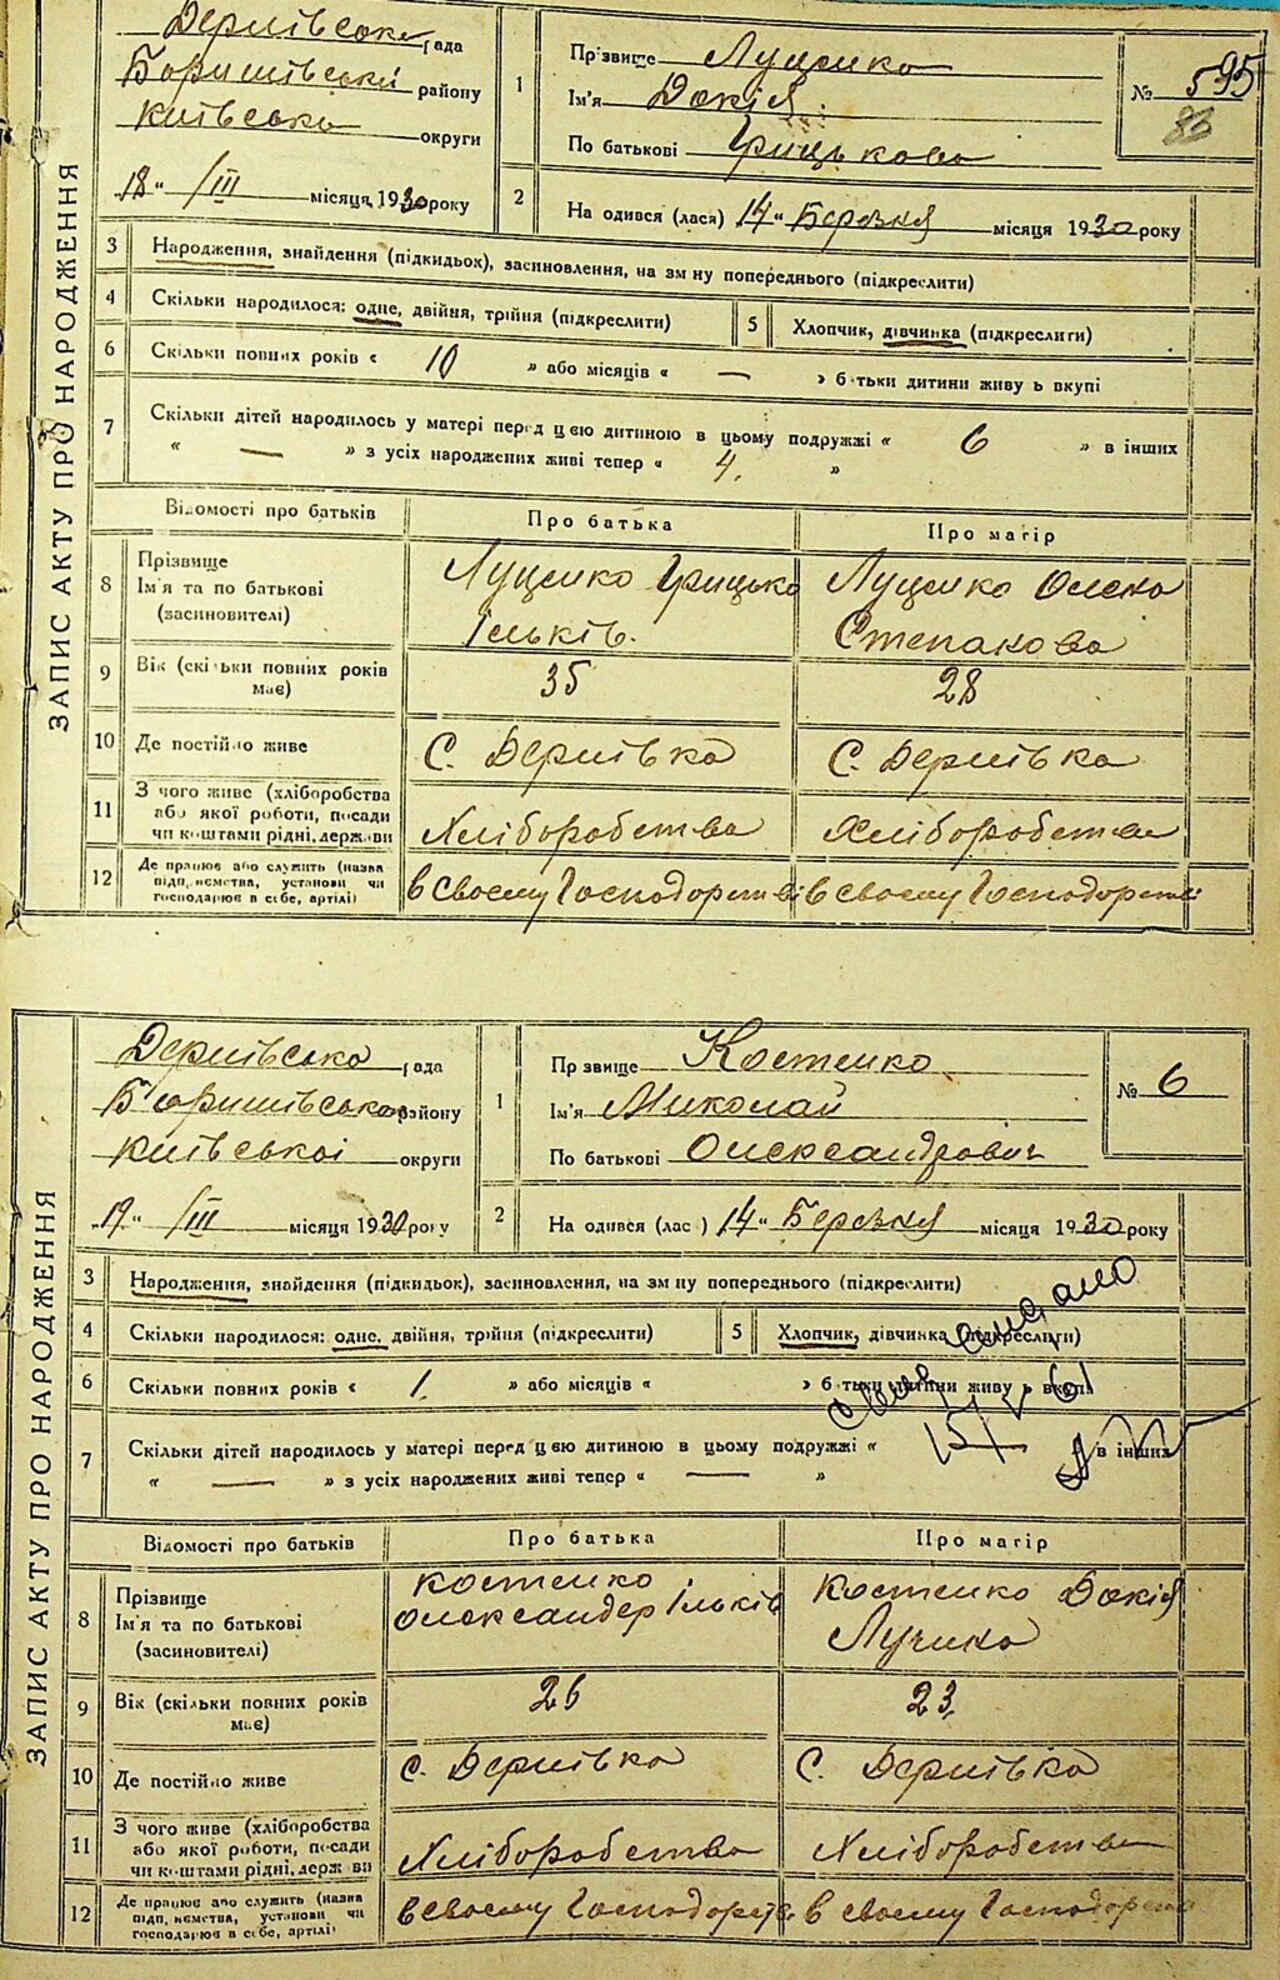 ЗАПИС АКТУ ПРО НАРОДЖЕННЯ
Дернівська рада
району
Київсько округи
18 " /III місяця 1930 року
1 Прізвище Луценко
Ім'я Докія
По батькові Грицькова
№ 5 95
83
2 На одився (лася) 14 " Березня місяця 1930 року
3 Народження, знайдення (підкидьок), засиновлення, на зм ну попереднього (підкреслити)
4 Скільки народилося: одне, двійня, трійня (підкреслити)
5 Хлопчик, дівчинка (підкреслити)
6 Скільки повних років « 10 » або місяців « — » б тьки дитини живу ь вкупі
7 Скільки дітей народилось у матері перед цією дитиною в цьому подружжі « 6 » в інших
« — » з усіх народжених живі тепер « 4. »
Відомості про батьків
Про батька
Про матір
8 Прізвище
Ім'я та по батькові
(засиновителі)
Луценко Грицько
Ільків.
Луценко Олена
Степанова
9 Вік (скільки повних років
має)
35
28
10 Де постійно живе
С. Дернівка
С. Дернівка
11 З чого живе (хліборобства
або якої роботи, посади
чи коштами рідні, держави
Хліборобства
Хліборобства
12 Де працює або служить (назва
підп. ємства, установи чи
господарює в себе, артілі)
в своєму Господорстві
в своєму Господорстві
ЗАПИС АКТУ ПРО НАРОДЖЕННЯ
Дернівсько рада
району
Київської округи
19 " /III місяця 1930 року
1 Пр звище Костенко
Ім'я Миколай
По батькові Олександрович
№ 6
2 На одився (лас ) 14 " Березня місяця 1930 року
3 Народження, знайдення (підкидьок), засиновлення, на зм ну попереднього (підкреслити)
4 Скільки народилося: одне, двійня, трійня (підкреслити)
5 Хлопчик, дівчинка (підкреслити)
6 Скільки повних років « 1. » або місяців « » б тьки дитини живу ь вкупі
7 Скільки дітей народилось у матері перед цією дитиною в цьому подружжі « в інших
« — » з усіх народжених живі тепер « — »
Відомості про батьків
Про батька
Про матір
8 Прізвище
Ім'я та по батькові
(засиновителі)
Костенко
Олександер Ільків
Костенко Докія
9 Вік (скільки повних років
має)
26
23.
10 Де постійно живе
С. Дернівка
С. Дернівка
11 З чого живе (хліборобства
або якої роботи, посади
чи коштами рідні, держ ви
Хліборобства
Хліборобства
12 Де працює або служить (назва
підп. ємства, установи чи
господарює в себе, артілі)
в своєму Господорств
в своєму Господорств